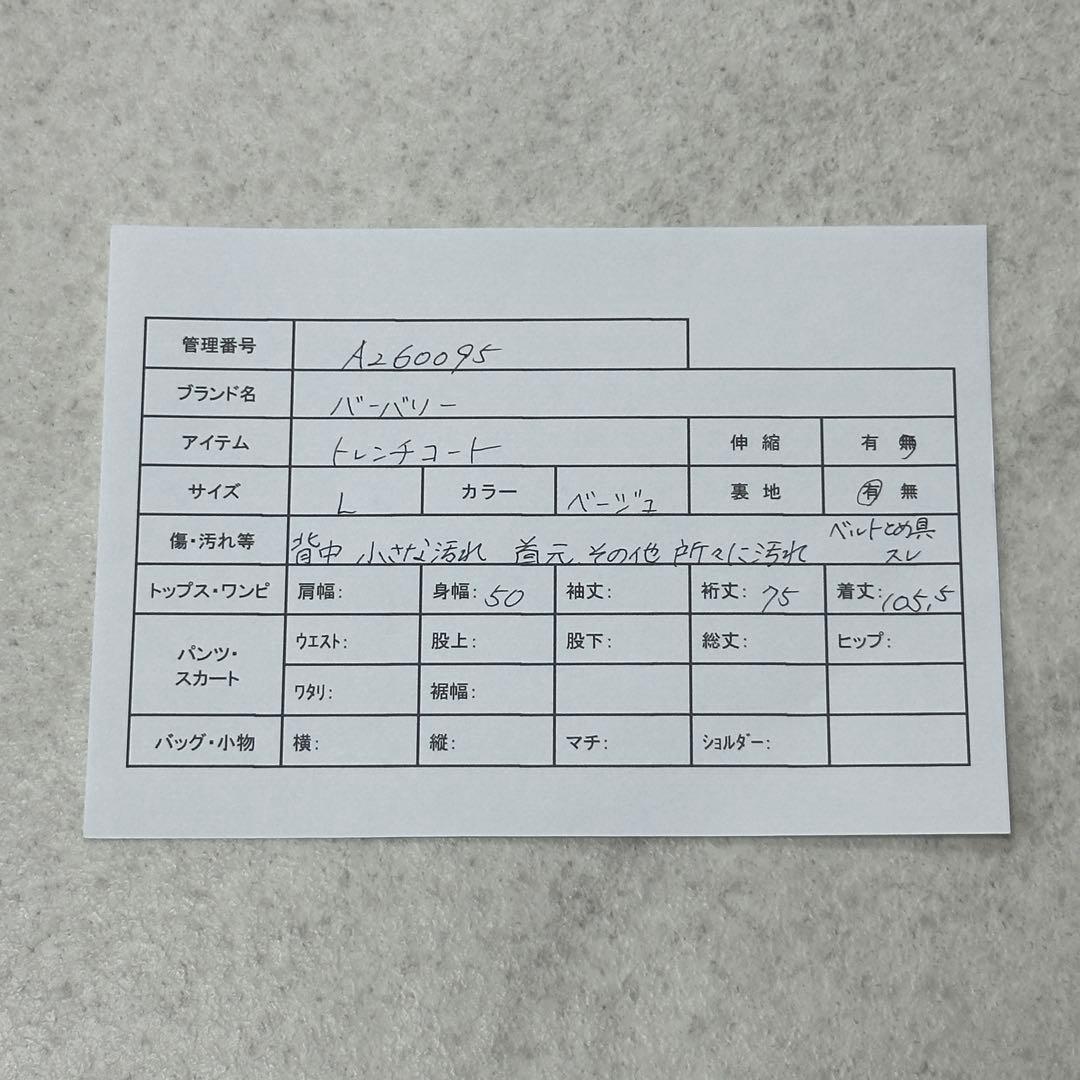 管理番号 A260095
ブランド名 バーバリー
アイテム トレンチコート 伸縮 有 無
サイズ L カラー ベージュ 裏地 有 無
傷・汚れ等 背中 小さな汚れ 首元、その他 所々に汚れ ベルトとめ具
スレ
トップス・ワンピ 肩幅: 身幅: 50 袖丈: 裄丈: 75 着丈: 105,5
パンツ・
スカート
ウエスト: 股上: 股下: 総丈: ヒップ:
ワタリ: 裾幅:
バッグ・小物 横: 縦: マチ: ショルダー: